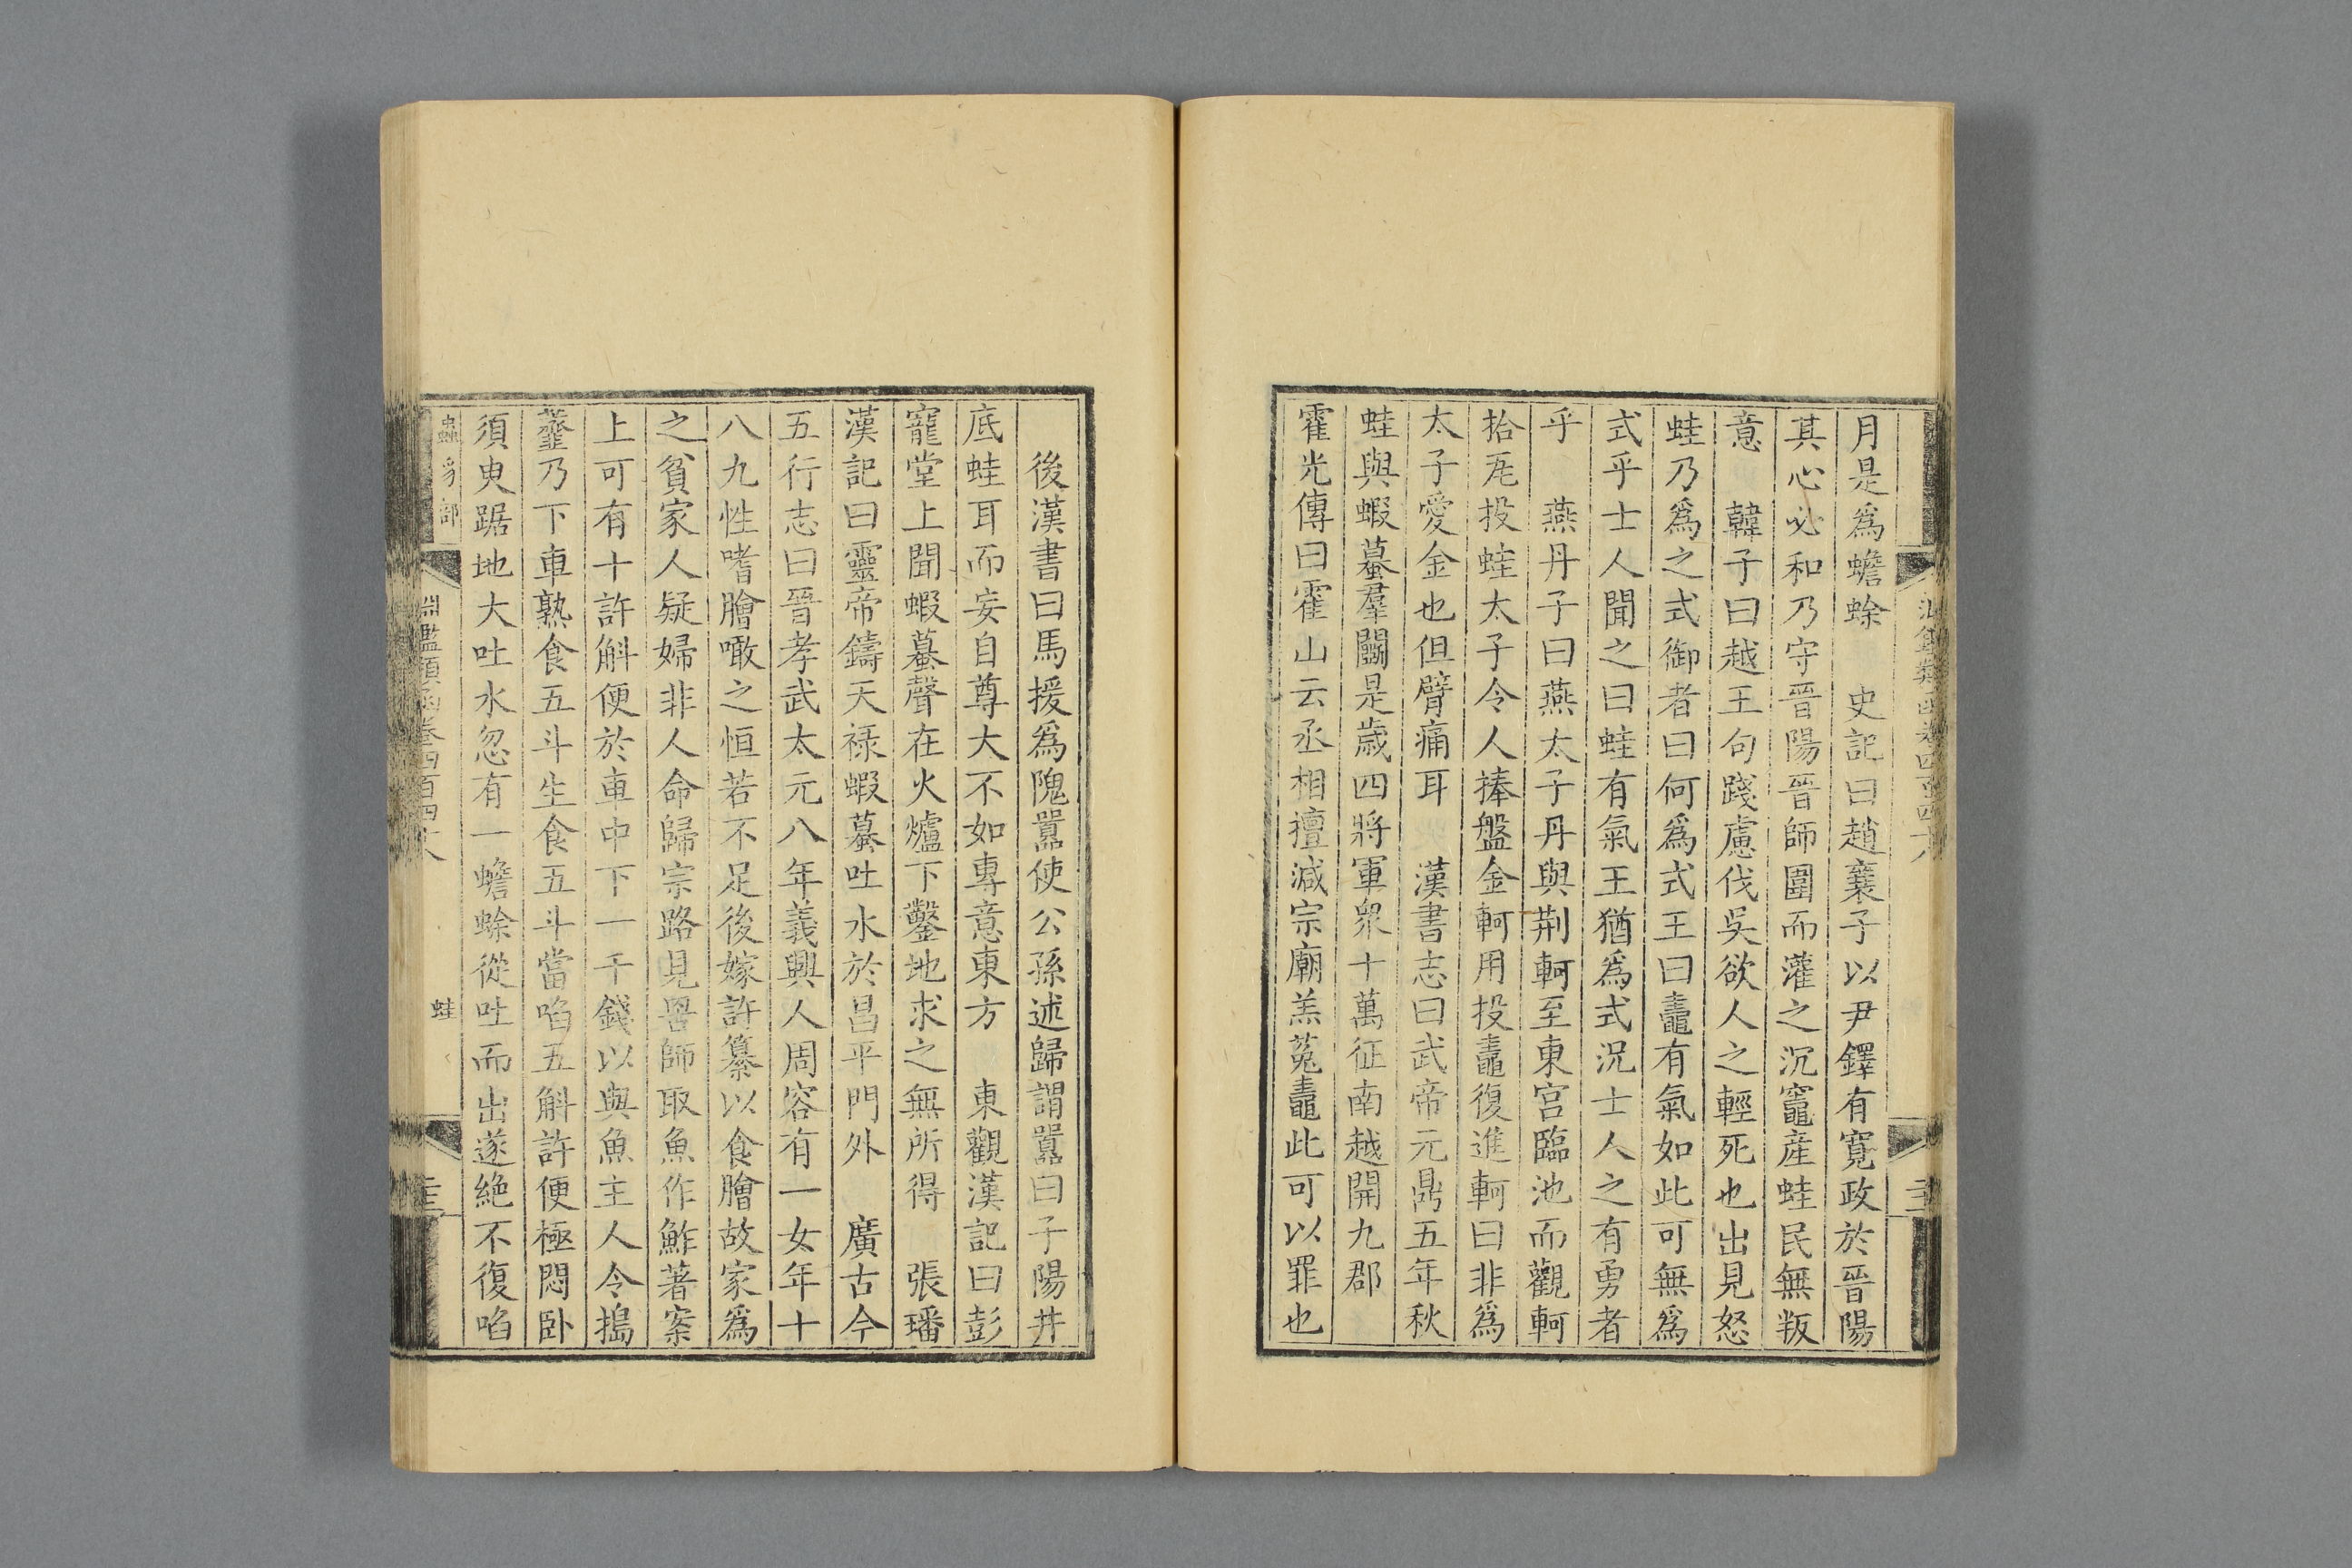 月是爲蟾蜍　史記曰趙襄子以尹鐸有寬政於晉陽
其心必和乃守晉陽晉師圍而灌之沉竈産蛙民無叛
意　韓子曰越王句踐慮伐吳欲人之輕死也出見怒
蛙乃爲之式御者曰何爲式王曰鼃有氣如此可無爲
式乎士人聞之曰蛙有氣王猶爲式況士人之有勇者
乎　燕丹子曰燕太子丹與荆軻至東宫臨池而觀軻
拾瓦投蛙太子令人捧盤金軻用投鼃復進軻曰非爲
太子愛金也但臂痛耳　漢書志曰武帝元鼎五年秋
蛙與蝦蟇羣鬭是歲四將軍衆十萬征南越開九郡
霍光傳曰霍山云丞相擅減宗廟羔菟鼃此可以罪也
後漢書曰馬援爲隗囂使公孫述歸謂囂曰子陽井
底蛙耳而妄自尊大不如專意東方　東觀漢記曰彭
寵堂上聞蝦蟇聲在火爐下鑿地求之無所得　張璠
漢記曰靈帝鑄天禄蝦蟇吐水於昌平門外　廣古今
五行志曰晉孝武太元八年義興人周容有一女年十
八九性嗜膾噉之恒若不足後嫁許纂以食膾故家爲
之貧家人疑婦非人命歸宗路見罟師取魚作鮓著案
上可有十許斛便於車中下一千錢以與魚主人令搗
虀乃下車熟食五斗生食五斗當啗五斛許便極悶卧
須臾踞地大吐水忽有一蟾蜍從吐而出遂絶不復啗
蟲豸部
淵鑑類函卷四百四十八
蛙